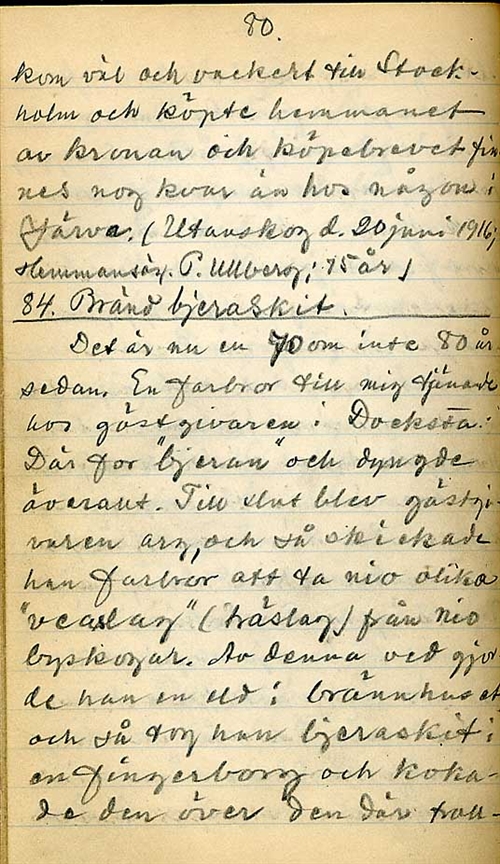 80.
kom väl och vackert till Stock-
holm och köpte hemmanet
av kronan och köpebrevet fin
nes nog kvar än hos någon i
Järva. (Utanskog d. 20 juni 1916;
Hemmansäg. P. Ullberg; 75 år)
84. Bränd bjeraskit.
Det är nu en 70 om inte 80 år
sedan. En farbror till mig tjänade
hos gästgivaren i Docksta.
Där for "bjeran" och dyngde
överallt. Till slut blev gästgi-
varen arg, och så skickade
han farbror att ta nio olika
"veaslag" (träslag) från nio
byskogar. Av denna ved gjor
de han en eld i brännhuset
och så tog han bjeraskit i
en fingerborg och koka-
de den över den där troll-